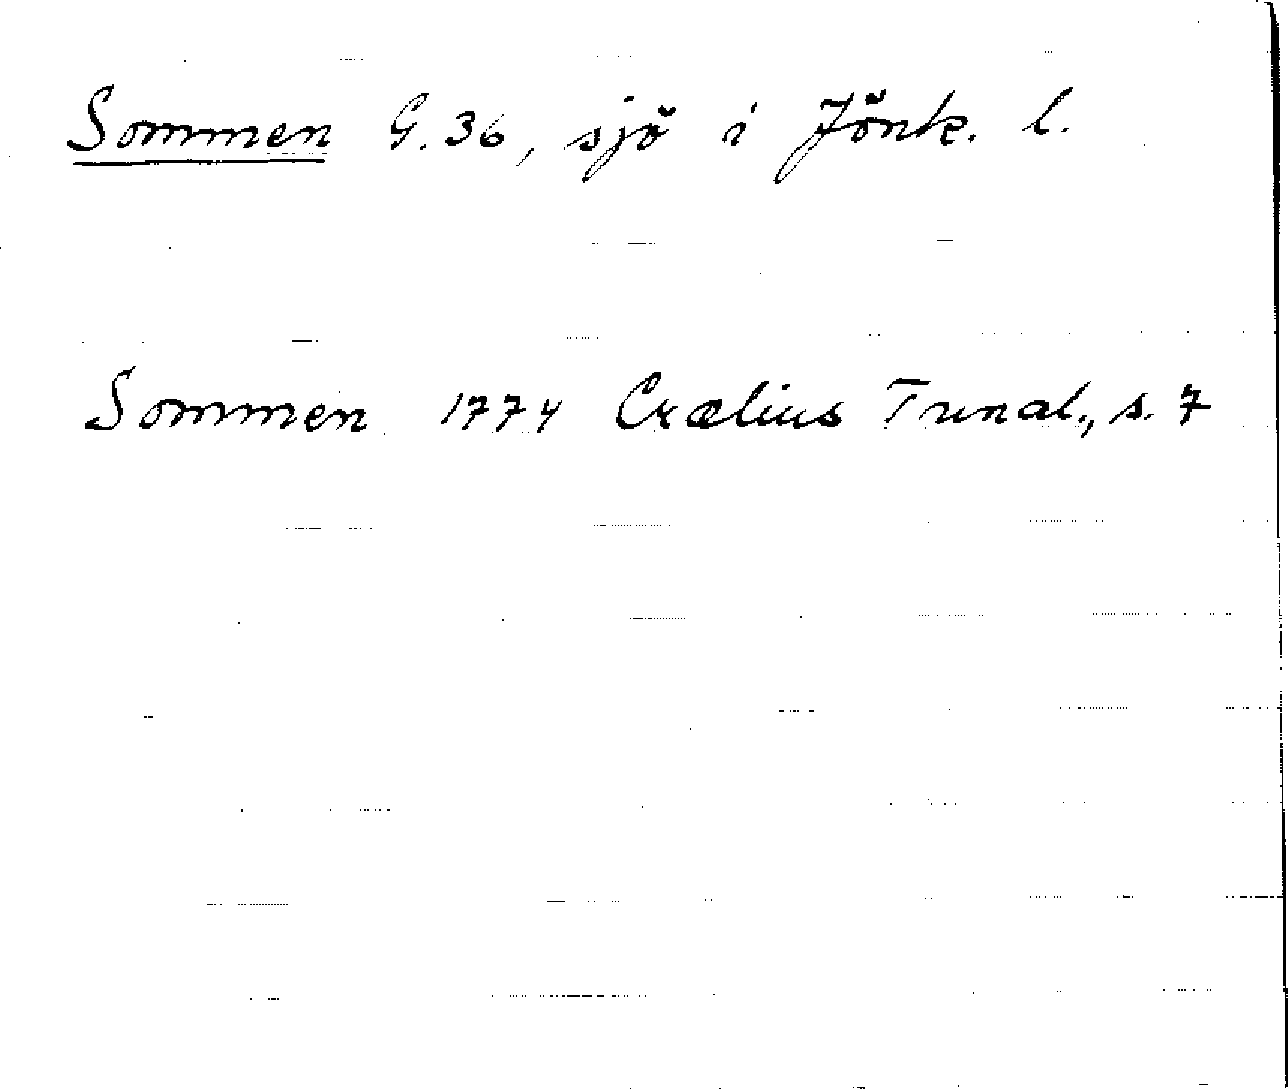 Sommen G.36, sjö i Jönk. l.
Sommen 1774 Crælius Tunal., s. 7